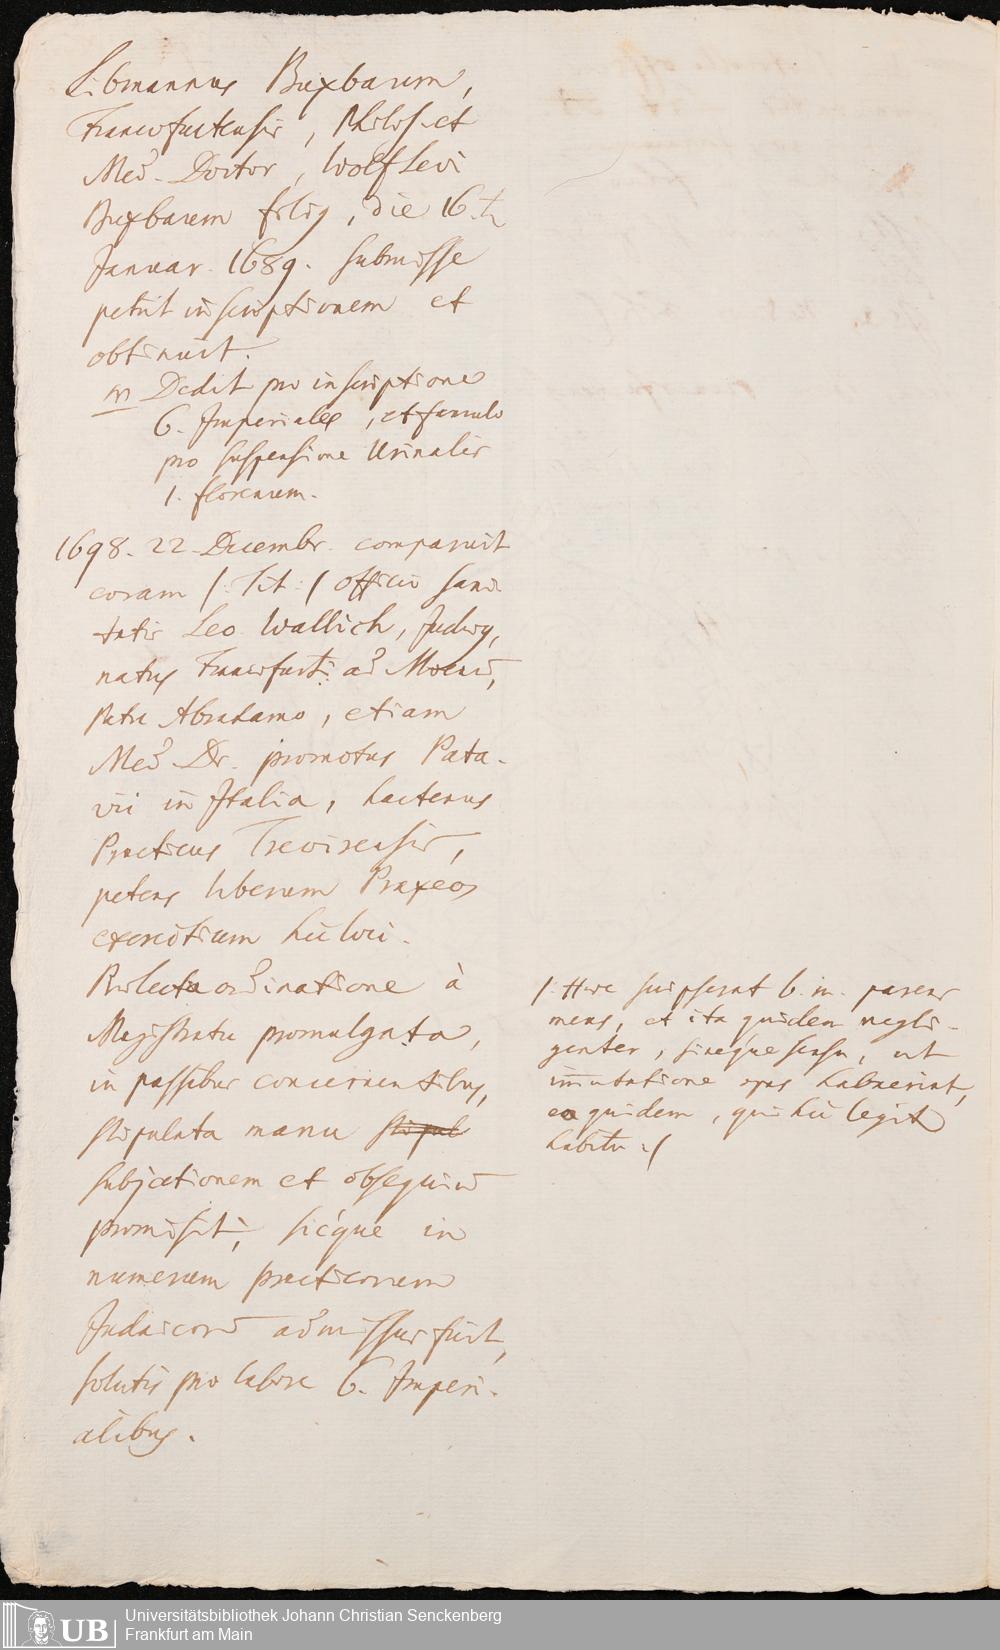 Libmannus Buxbaum,
Francofurtensis, Philos. et
Med. Doctor, Wolf Levi
Buxbaum filiꝯ, die 16.th
Januar. 1689. submisse
petiit inscriptionem et
obtinuit.
Dedit pro inscriptione
6. Imperiales, et famulo
pro suspensione Urinalis
1. florenum.
1698. 22 Decembr. comparuit
coram /: Tit :/ officio Sani-
tatis Leo Wallich, Judæꝯ,
natꝯ Francofurti ad Moenū,
Patre Abrahamo, etiam
Med. Dr. promotus Pata-
vii in Italia, hactenus
Practicus Trevirensis,
petens liberum Praxeos
exercitium hic loci.
Prælecta ordinatione à
Magistratu promulgata,
in passibus concernentibus,
stipulata manu stipul
subjectionem et obsequiū
promisit, sicque in
numerum practicorum
Judaicorū admissus fuit,
solutis pro labore 6. Imperi-
alibꝯ.
/: Haec scripserat b. m. parens
meus, et ita quidem negli-
genter, sineque sensu, ut
immutatione opus habuerint,
ea quidem, qui hic legit
habitu :/
Universitätsbibliothek Johann Christian Senckenberg
Frankfurt am Main
UB